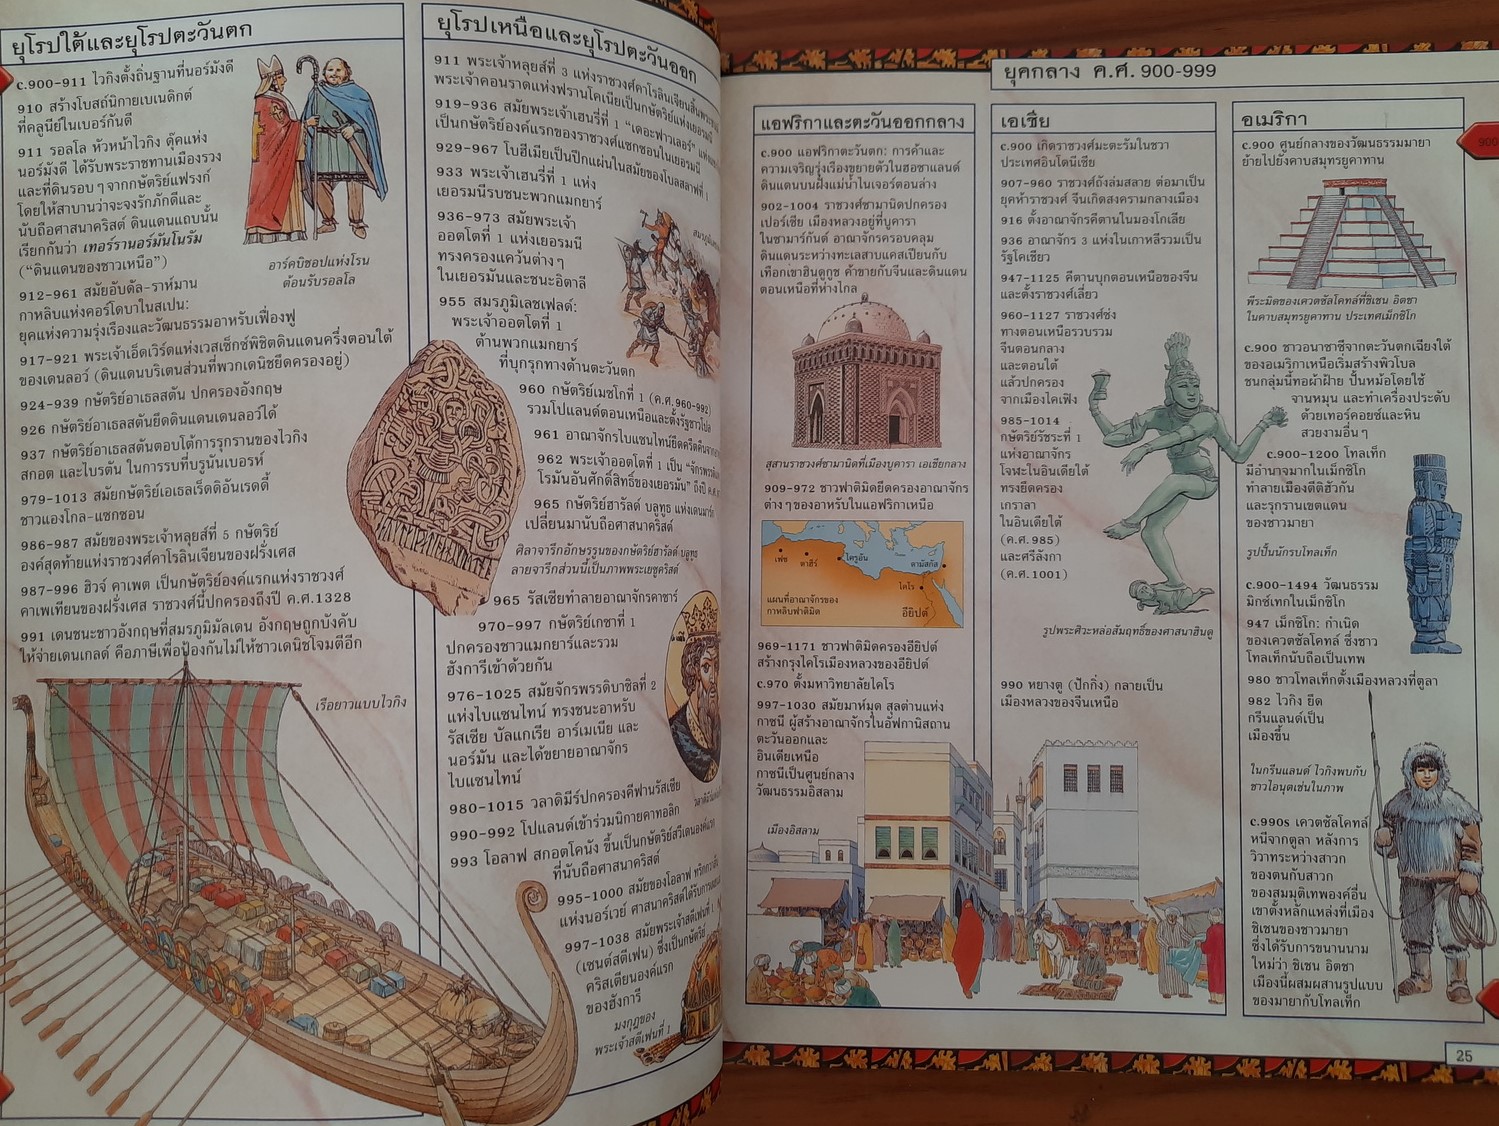 ยุโรปใต้และยุโรปตะวันตก
c.900-911 ไวกิงตั้งถิ่นฐานที่นอร์มังดี
910 สร้างโบสถ์นิกายเบเนดิกต์
ที่คลูนีย์ในเบอร์กันดี
911 รอลโล หัวหน้าไวกิง ดุ๊คแห่ง
นอร์มังดี ได้รับพระราชทานเมืองรวง
และที่ดินรอบๆจากกษัตริย์แฟรงก์
โดยให้สาบานว่าจะจงรักภักดีและ
นับถือศาสนาคริสต์ ดินแดนแถบนั้น
เรียกกันว่า เทอร์รานอร์มันโนรัม
(“ดินแดนของชาวเหนือ”)
อาร์คบิชอปแห่งโรน
ต้อนรับรอลโล
912-961 สมัยอับดัล-ราห์มาน
กาหลิบแห่งคอร์โดบาในสเปน:
ยุคแห่งความรุ่งเรืองและวัฒนธรรมอาหรับเฟื่องฟู
917-921 พระเจ้าเอ็ดเวิร์ดแห่งเวสเซ็กซ์พิชิตดินแดนครึ่งตอนใต้
ของเดนลอว์ (ดินแดนบริเตนส่วนที่พวกเดนิชยึดครองอยู่)
924-939 กษัตริย์อาเธลสตัน ปกครองอังกฤษ
926 กษัตริย์อาเธลสตันยึดดินแดนเดนลอว์ได้
937 กษัตริย์อาเธลสตันตอบโต้การรุกรานของไวกิง
สกอต และไบรตัน ในการรบที่บรูนันเบอรห์
979-1013 สมัยกษัตริย์เอเธลเร็ดดิอันเรดดี้
ชาวแองโกล-แซกซอน
986-987 สมัยของพระเจ้าหลุยส์ที่ 5 กษัตริย์
องค์สุดท้ายแห่งราชวงศ์คาโรลินเจียนของฝรั่งเศส
987-996 ฮิวจ์ คาเพต เป็นกษัตริย์องค์แรกแห่งราชวงศ์
คาเพเทียนของฝรั่งเศส ราชวงศ์นี้ปกครองถึงปี ค.ศ.1328
991 เดนชนะชาวอังกฤษที่สมรภูมิมัลเดน อังกฤษถูกบังคับ
ให้จ่ายเดนเกลด์ คือภาษีเพื่อป้องกันไม่ให้ชาวเดนิชโจมตีอีก
เรือยาวแบบไวกิง
ยุโรปเหนือและยุโรปตะวันออก
911 พระเจ้าหลุยส์ที่ 3 แห่งราชวงศ์คาโรลินเจียนสิ้นพระชนม์
พระเจ้าคอนราดแห่งฟรานโคเนียเป็นกษัตริย์แห่งเยอรมนี
919-936 สมัยพระเจ้าเฮนรี่ที่ 1 “เดอะฟาวเลอร์”
เป็นกษัตริย์องค์แรกของราชวงศ์แซกซอนในเยอรมนี
929-967 โบฮีเมียเป็นปึกแผ่นในสมัยของโบลสลาฟที่ 1
933 พระเจ้าเฮนรี่ที่ 1 แห่ง
เยอรมนีรบชนะพวกแมกยาร์
936-973 สมัยพระเจ้า
ออตโตที่ 1 แห่งเยอรมนี
ทรงครองแคว้นต่างๆ
ในเยอรมันและชนะอิตาลี
955 สมรภูมิเลชเฟลด์:
พระเจ้าออตโตที่ 1
ต้านพวกแมกยาร์
ที่บุกรุกทางด้านตะวันตก
960 กษัตริย์เมซโกที่ 1 (ค.ศ.960-992)
รวมโปแลนด์ตอนเหนือและตั้งรัฐชาวโปล
961 อาณาจักรไบแซนไทน์ยึดครีตคืน
962 พระเจ้าออตโตที่ 1 เป็น “จักรพรรดิ
โรมันอันศักดิ์สิทธิ์ของเยอรมัน” ถึงปี ค.ศ.
965 กษัตริย์ฮาร์ลด์ บลูทูธ แห่งเดนมาร์ก
เปลี่ยนมานับถือศาสนาคริสต์
ศิลาจารึกอักษรรูนของกษัตริย์ฮาร์ลด์ บลูทูธ
ลายจารึกส่วนนี้เป็นภาพพระเยซูคริสต์
965 รัสเซียทำลายอาณาจักรคาซาร์
970-997 กษัตริย์เกซาที่ 1
ปกครองชาวแมกยาร์และรวม
ฮังการีเข้าด้วยกัน
976-1025 สมัยจักรพรรดิบาซิลที่ 2
แห่งไบแซนไทน์ ทรงชนะอาหรับ
รัสเซีย บัลแกเรีย อาร์เมเนีย และ
นอร์มัน และได้ขยายอาณาจักร
ไบแซนไทน์
980-1015 วลาดิมีร์ปกครองคีฟานรัสเซีย
990-992 โปแลนด์เข้าร่วมนิกายคาทอลิก
993 โอลาฟ สกอตโคนัง ขึ้นเป็นกษัตริย์สวีเดนองค์แรก
ที่นับถือศาสนาคริสต์
995-1000 สมัยของโอลาฟ
แห่งนอร์เวย์ ศาสนาคริสต์ได้รับการ
997-1038 สมัยพระเจ้าสตีเฟนที่ 1
(เซนต์สตีเฟน) ซึ่งเป็นกษัตริย์
คริสเตียนองค์แรก
ของฮังการี
มงกุฎของ
พระเจ้าสตีเฟนที่ 1
ยุคกลาง ค.ศ. 900-999
แอฟริกาและตะวันออกกลาง
c.900 แอฟริกาตะวันตก: การค้าและ
ความเจริญรุ่งเรืองขยายตัวในฮอซาแลนด์
ดินแดนบนฝั่งแม่น้ำไนเจอร์ตอนล่าง
902-1004 ราชวงศ์ซามานิดปกครอง
เปอร์เซีย เมืองหลวงอยู่ที่บูคารา
ในซามาร์กันด์ อาณาจักรครอบคลุม
ดินแดนระหว่างทะเลสาบแคสเปียนกับ
เทือกเขาฮินดูกูช ค้าขายกับจีนและดินแดน
ตอนเหนือที่ห่างไกล
สุสานราชวงศ์ซามานิดที่เมืองบูคารา เอเชียกลาง
909-972 ชาวฟาติมิดยึดครองอาณาจักร
ต่างๆของอาหรับในแอฟริกาเหนือ
เฟซ
ตาฮิร์
ไครูอัน
ดามัสกัส
ไคโร
อียิปต์
แผนที่อาณาจักรของ
กาหลิบฟาติมิด
969-1171 ชาวฟาติมิดครองอียิปต์
สร้างกรุงไคโรเมืองหลวงของอียิปต์
c.970 ตั้งมหาวิทยาลัยไคโร
997-1030 สมัยมาห์มุด สุลต่านแห่ง
กาซนี ผู้สร้างอาณาจักรในอัฟกานิสถาน
ตะวันออกและ
อินเดียเหนือ
กาซนีเป็นศูนย์กลาง
วัฒนธรรมอิสลาม
เมืองอิสลาม
เอเชีย
c.900 เกิดราชวงศ์มะตะรัมในชวา
ประเทศอินโดนีเซีย
907-960 ราชวงศ์ถังล่มสลาย ต่อมาเป็น
ยุคห้าราชวงศ์ จีนเกิดสงครามกลางเมือง
916 ตั้งอาณาจักรคีตานในมองโกเลีย
936 อาณาจักร 3 แห่งในเกาหลีรวมเป็น
รัฐโคเชียว
947-1125 คีตานบุกตอนเหนือของจีน
และตั้งราชวงศ์เลี่ยว
960-1127 ราชวงศ์ซ่ง
ทางตอนเหนือรวบรวม
จีนตอนกลาง
และตอนใต้
แล้วปกครอง
จากเมืองไคเฟิง
985-1014
กษัตริย์รัชระที่ 1
แห่งอาณาจักร
โจฬะในอินเดียใต้
ทรงยึดครอง
เกราลา
ในอินเดียใต้
(ค.ศ.985)
และศรีลังกา
(ค.ศ.1001)
รูปพระศิวะหล่อสัมฤทธิ์ของศาสนาฮินดู
990 หยางตู (ปักกิ่ง) กลายเป็น
เมืองหลวงของจีนเหนือ
อเมริกา
c.900 ศูนย์กลางของวัฒนธรรมมายา
ย้ายไปยังคาบสมุทรยูคาทาน
พีระมิดของเควตซัลโคทล์ที่ชิเชน อิตซา
ในคาบสมุทรยูคาทาน ประเทศเม็กซิโก
c.900 ชาวอนาซาซีจากตะวันตกเฉียงใต้
ของอเมริกาเหนือเริ่มสร้างพิวโบล
ชนกลุ่มนี้ทอผ้าฝ้าย ปั้นหม้อโดยใช้
จานหมุน และทำเครื่องประดับ
ด้วยเทอร์คอยซ์และหิน
สวยงามอื่นๆ
c.900-1200 โทลเท็ก
มีอำนาจมากในเม็กซิโก
ทำลายเมืองตีติฮัวกัน
และรุกรานเขตแดน
ของชาวมายา
รูปปั้นนักรบโทลเท็ก
c.900-1494 วัฒนธรรม
มิกซ์เทกในเม็กซิโก
947 เม็กซิโก: กำเนิด
ของเควตซัลโคทล์ ซึ่งชาว
โทลเท็กนับถือเป็นเทพ
980 ชาวโทลเท็กตั้งเมืองหลวงที่ตูลา
982 ไวกิง ยึด
กรีนแลนด์เป็น
เมืองขึ้น
ในกรีนแลนด์ ไวกิงพบกับ
ชาวไอนุตเช่นในภาพ
c.990s เควตซัลโคทล์
หนีจากตูลา หลังการ
วิวาทระหว่างสาวก
ของตนกับสาวก
ของสมมุติเทพองค์อื่น
เขาตั้งหลักแหล่งที่เมือง
ชิเชนของชาวมายา
ซึ่งได้รับการขนานนาม
ใหม่ว่า ชิเชน อิตซา
เมืองนี้ผสมผสานรูปแบบ
ของมายากับโทลเท็ก
900
25